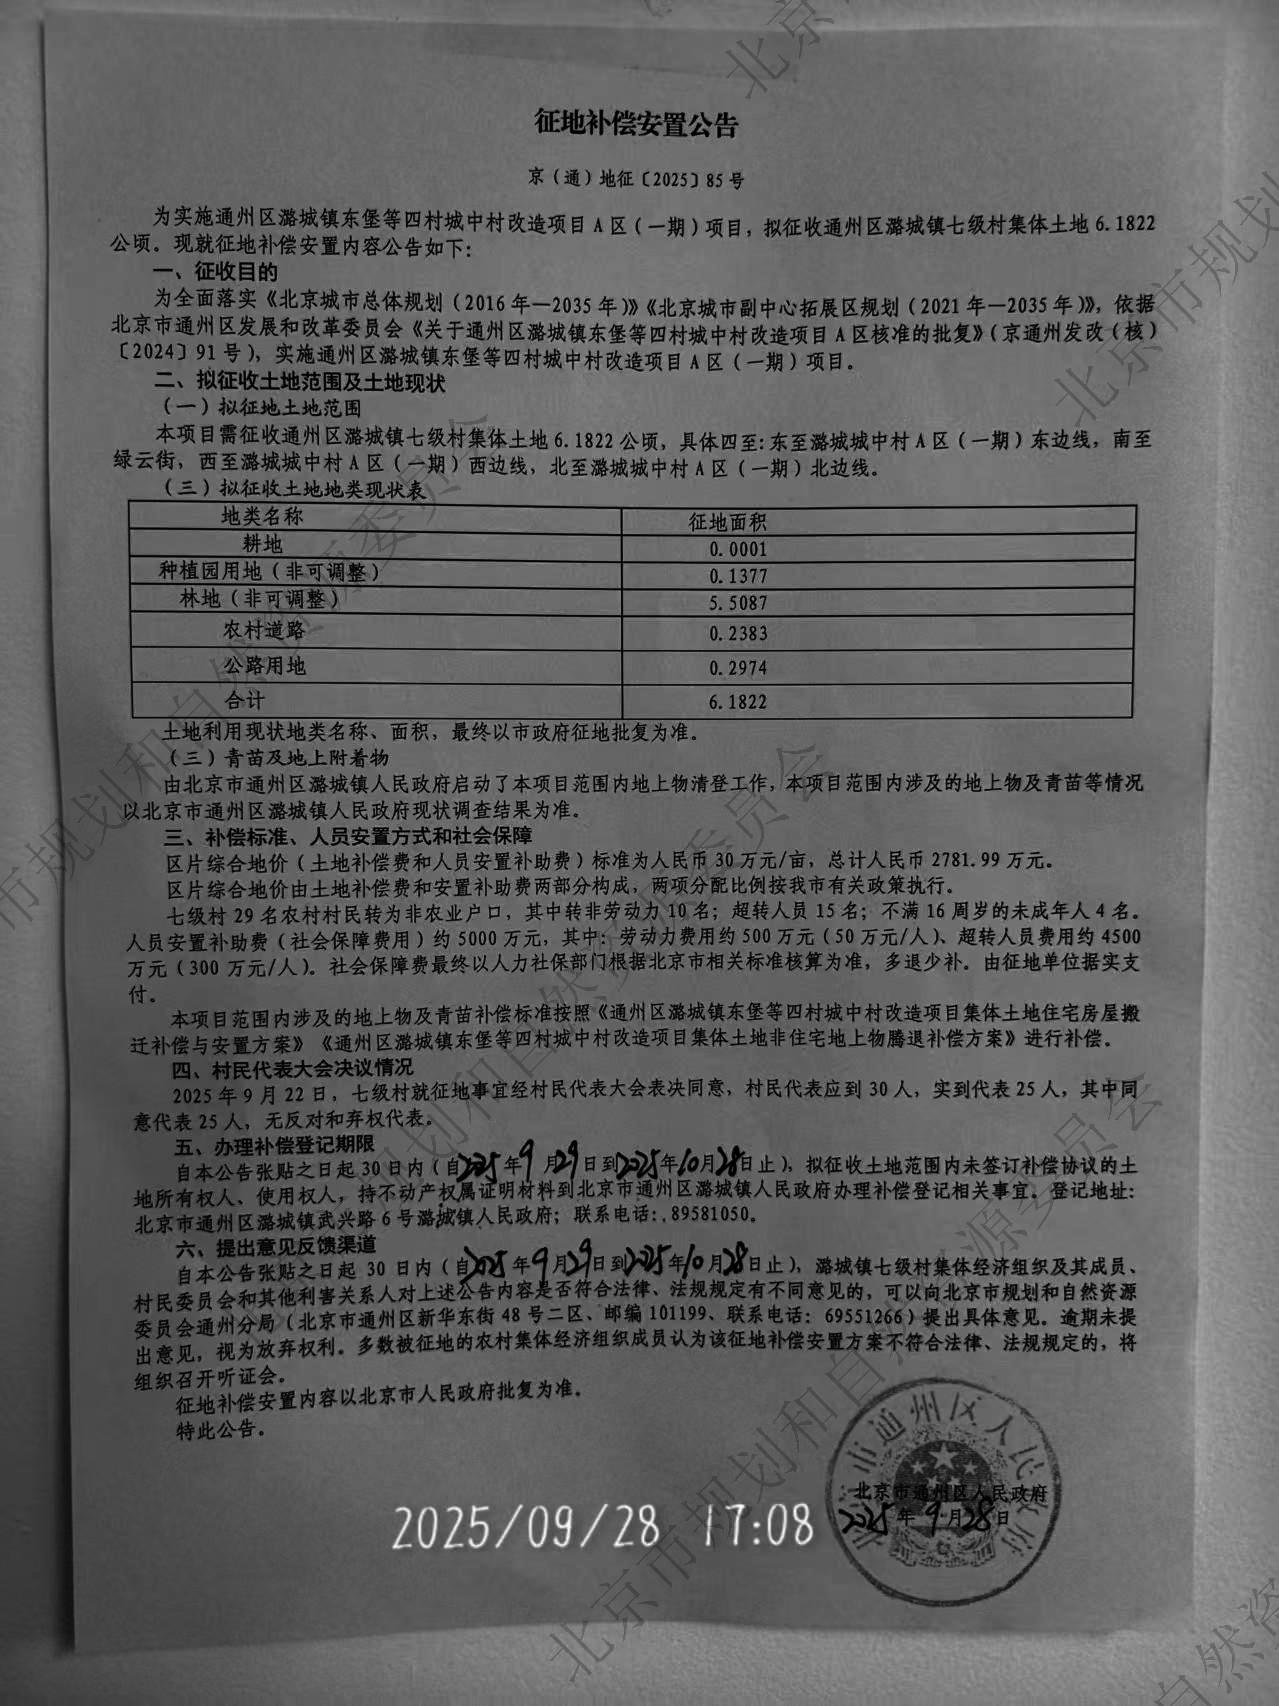 征地补偿安置公告
京（通）地征〔2025〕85号
为实施通州区潞城镇东堡等四村城中村改造项目A区（一期）项目，拟征收通州区潞城镇七级村集体土地6.1822
公顷。现就征地补偿安置内容公告如下：
一、征收目的
为全面落实《北京城市总体规划（2016年—2035年）》《北京城市副中心拓展区规划（2021年—2035年）》，依据
北京市通州区发展和改革委员会《关于通州区潞城镇东堡等四村城中村改造项目A区核准的批复》（京通州发改（核）
〔2024〕91号），实施通州区潞城镇东堡等四村城中村改造项目A区（一期）项目。
二、拟征收土地范围及土地现状
（一）拟征地土地范围
本项目需征收通州区潞城镇七级村集体土地6.1822公顷，具体四至：东至潞城城中村A区（一期）东边线，南至
绿云街，西至潞城城中村A区（一期）西边线，北至潞城城中村A区（一期）北边线。
（三）拟征收土地地类现状表
地类名称 征地面积
耕地 0.0001
种植园用地（非可调整） 0.1377
林地（非可调整） 5.5087
农村道路 0.2383
公路用地 0.2974
合计 6.1822
土地利用现状地类名称、面积，最终以市政府征地批复为准。
（三）青苗及地上附着物
由北京市通州区潞城镇人民政府启动了本项目范围内地上物清登工作，本项目范围内涉及的地上物及青苗等情况
以北京市通州区潞城镇人民政府现状调查结果为准。
三、补偿标准、人员安置方式和社会保障
区片综合地价（土地补偿费和人员安置补助费）标准为人民币30万元/亩，总计人民币2781.99万元。
区片综合地价由土地补偿费和安置补助费两部分构成，两项分配比例按我市有关政策执行。
七级村29名农村村民转为非农业户口，其中转非劳动力10名；超转人员15名；不满16周岁的未成年人4名。
人员安置补助费（社会保障费用）约5000万元，其中：劳动力费用约500万元（50万元/人）、超转人员费用约4500
万元（300万元/人）。社会保障费最终以人力社保部门根据北京市相关标准核算为准，多退少补。由征地单位据实支
付。
本项目范围内涉及的地上物及青苗补偿标准按照《通州区潞城镇东堡等四村城中村改造项目集体土地住宅房屋搬
迁补偿与安置方案》《通州区潞城镇东堡等四村城中村改造项目集体土地非住宅地上物腾退补偿方案》进行补偿。
四、村民代表大会决议情况
2025年9月22日，七级村就征地事宜经村民代表大会表决同意，村民代表应到30人，实到代表25人，其中同
意代表25人，无反对和弃权代表。
五、办理补偿登记期限
自本公告张贴之日起30日内（自2025年9月29日到2025年10月28日止），拟征收土地范围内未签订补偿协议的土
地所有权人、使用权人，持不动产权属证明材料到北京市通州区潞城镇人民政府办理补偿登记相关事宜。登记地址：
北京市通州区潞城镇武兴路6号潞城镇人民政府；联系电话：89581050。
六、提出意见反馈渠道
自本公告张贴之日起30日内（自2025年9月29日到2025年10月28日止），潞城镇七级村集体经济组织及其成员、
村民委员会和其他利害关系人对上述公告内容是否符合法律、法规规定有不同意见的，可以向北京市规划和自然资源
委员会通州分局（北京市通州区新华东街48号二区、邮编101199、联系电话：69551266）提出具体意见。逾期未提
出意见，视为放弃权利。多数被征地的农村集体经济组织成员认为该征地补偿安置方案不符合法律、法规规定的，将
组织召开听证会。
征地补偿安置内容以北京市人民政府批复为准。
特此公告。
北京市通州区人民政府
北京市通州区人民政府
2025年9月28日
2025/09/28 17:08
北京市规划和自然资源委员会